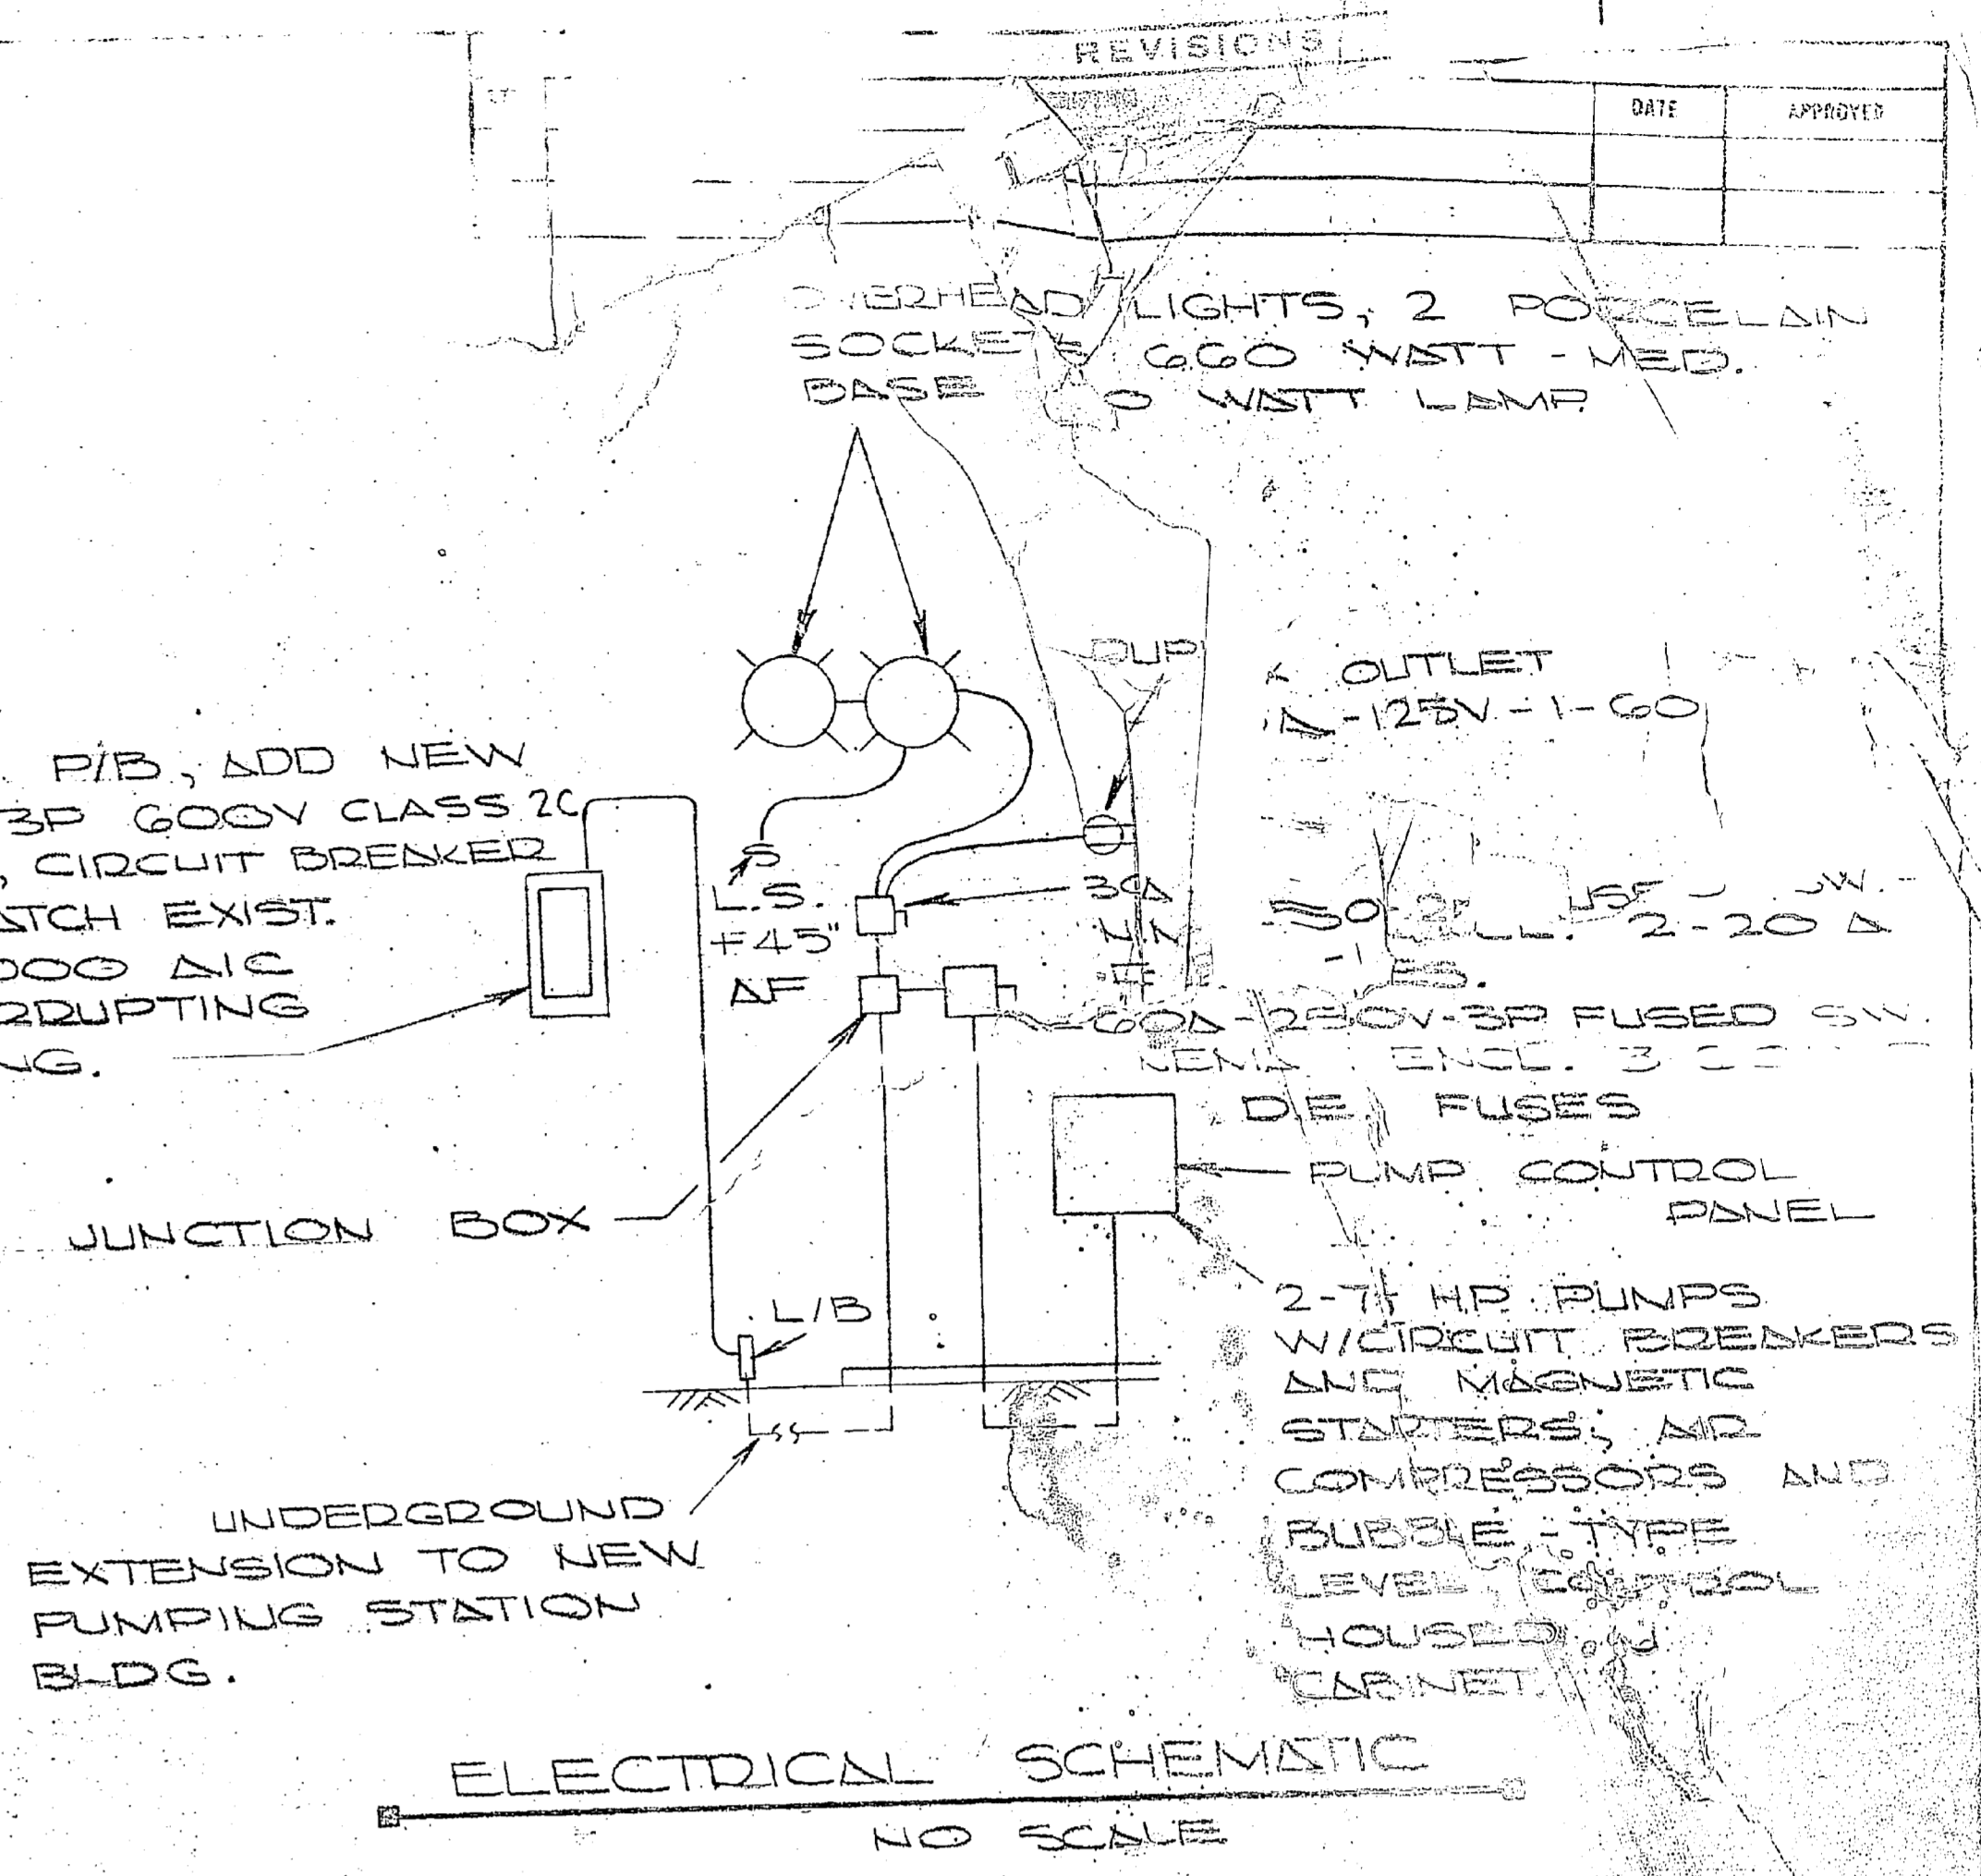 REVISIONS
DATE APPROVED
OVERHEAD LIGHTS, 2 PORCELAIN
SOCKETS 660 WATT - MED.
BASE WATT LAMP
DUP OUTLET
-125V-1-60
P/B, ADD NEW
3P 600V CLASS
CIRCUIT BREAKER
ATCH EXIST.
000 AIC
RRUPTING
NG.
L.S.
+45"
AF
2-20 A
60A-250V-3P FUSED SW.
NEMA ENCL. 3
D.E. FUSES
PUMP CONTROL
PANEL
JUNCTION BOX
L/B
2-7½ H.P. PUMPS
W/CIRCUIT BREAKERS
AND MAGNETIC
STARTERS; AIR
COMPRESSORS AND
BUBBLE-TYPE
LEVEL CONTROL
HOUSED
CABINET.
UNDERGROUND
EXTENSION TO NEW
PUMPING STATION
BLDG.
ELECTRICAL SCHEMATIC
NO SCALE